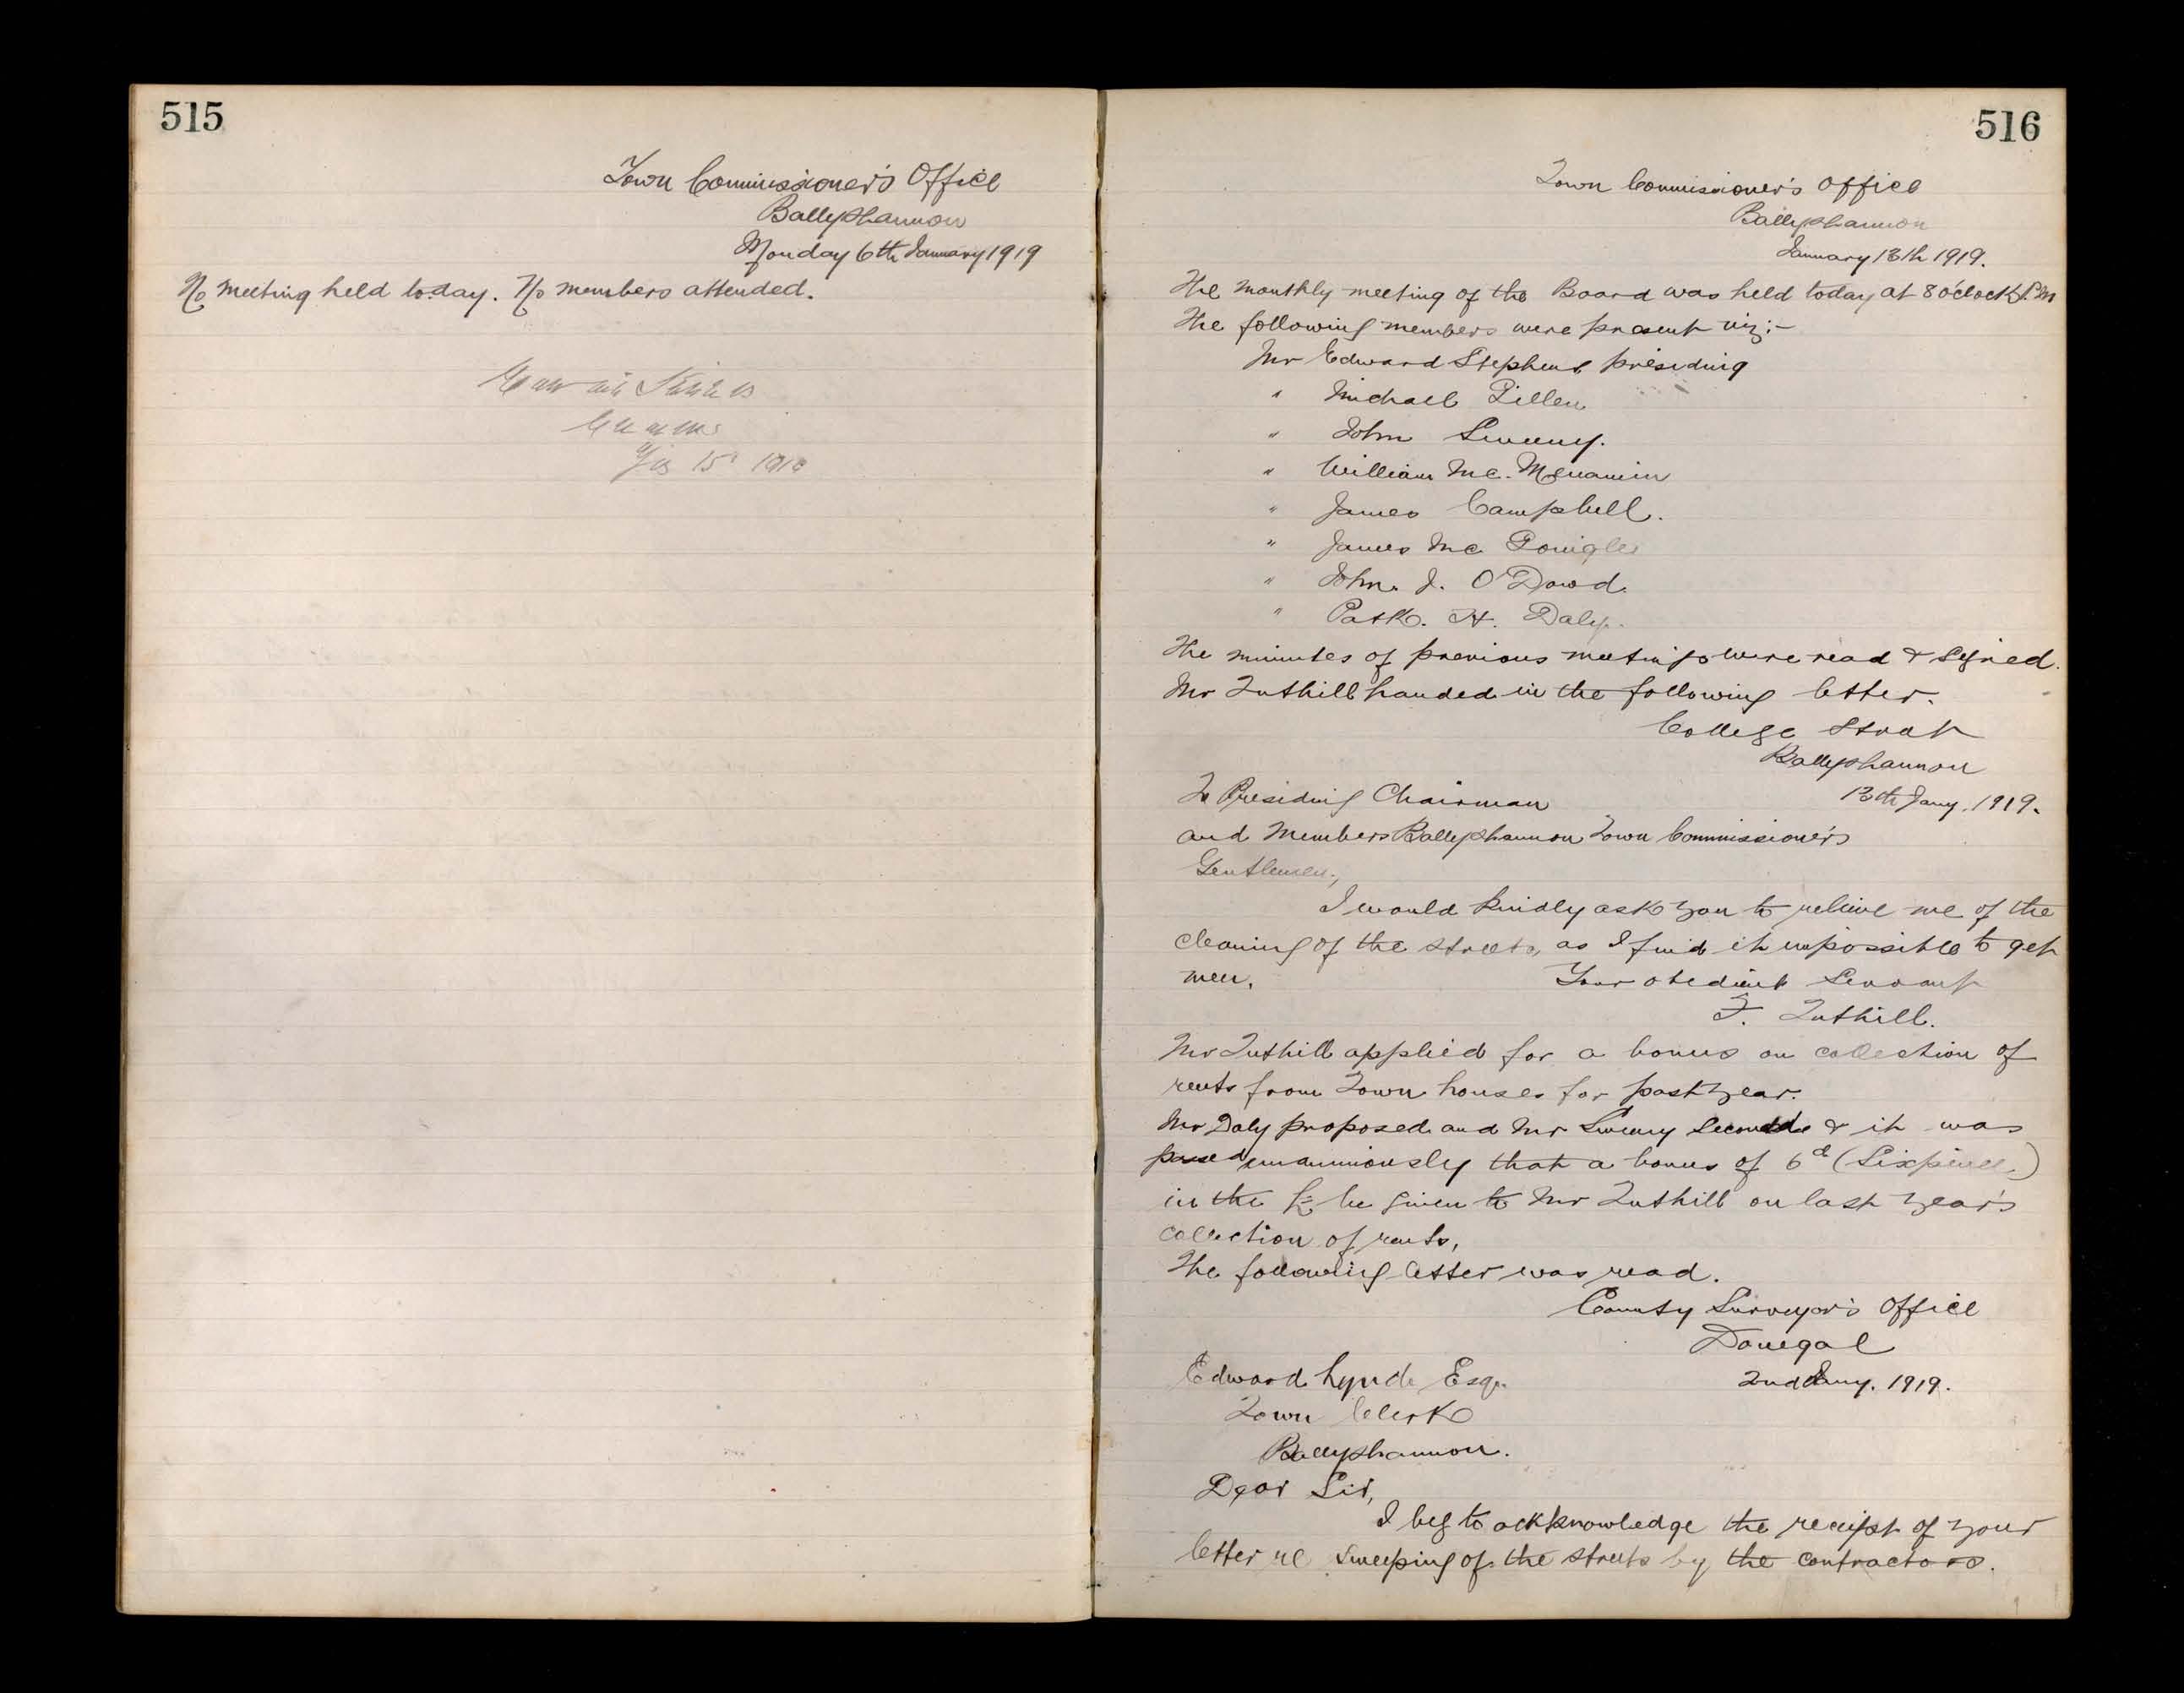 515
Town Commissioner's Office
Ballyshannon
Monday 6th January 1919
No meeting held to-day. No members attended.
516
Town Commissioner's Office
Ballyshannon
January 13th 1919.
The monthly meeting of the Board was held today at 8 o'clock P.M
The following members were present viz:-
Mr Edward Stephens presiding
" Michael Pillen
" John Sweeny.
" William Mc. Menamin
" James Campbell.
" James Mc Gonigle
" John J. O'Dowd.
" Patk. H. Daly.
The minutes of previous meetings were read & signed.
Mr Tuthill handed in the following letter.
College Street
Ballyshannon
13th Jany. 1919.
To Presiding Chairman
and Members Ballyshannon Town Commissioner's
Gentlemen,
I would kindly ask you to relieve me of the
cleaning of the streets, as I find it impossible to get
men.
Your obedient Servant
F. Tuthill.
Mr Tuthill applied for a bonus on collection of
rents from Town houses for past year.
Mr Daly proposed and Mr Sweeny Seconded & it was
passed unanimously that a bonus of 6d (Sixpence)
in the £ be given to Mr Tuthill on last year's
collection of rents,
The following letter was read.
County Surveyor's Office
Donegal
2nd Jany. 1919.
Edward Lynch Esq.
Town Clerk
Ballyshannon.
Dear Sir,
I beg to acknowledge the receipt of your
letter re sweeping of the streets by the contractors.